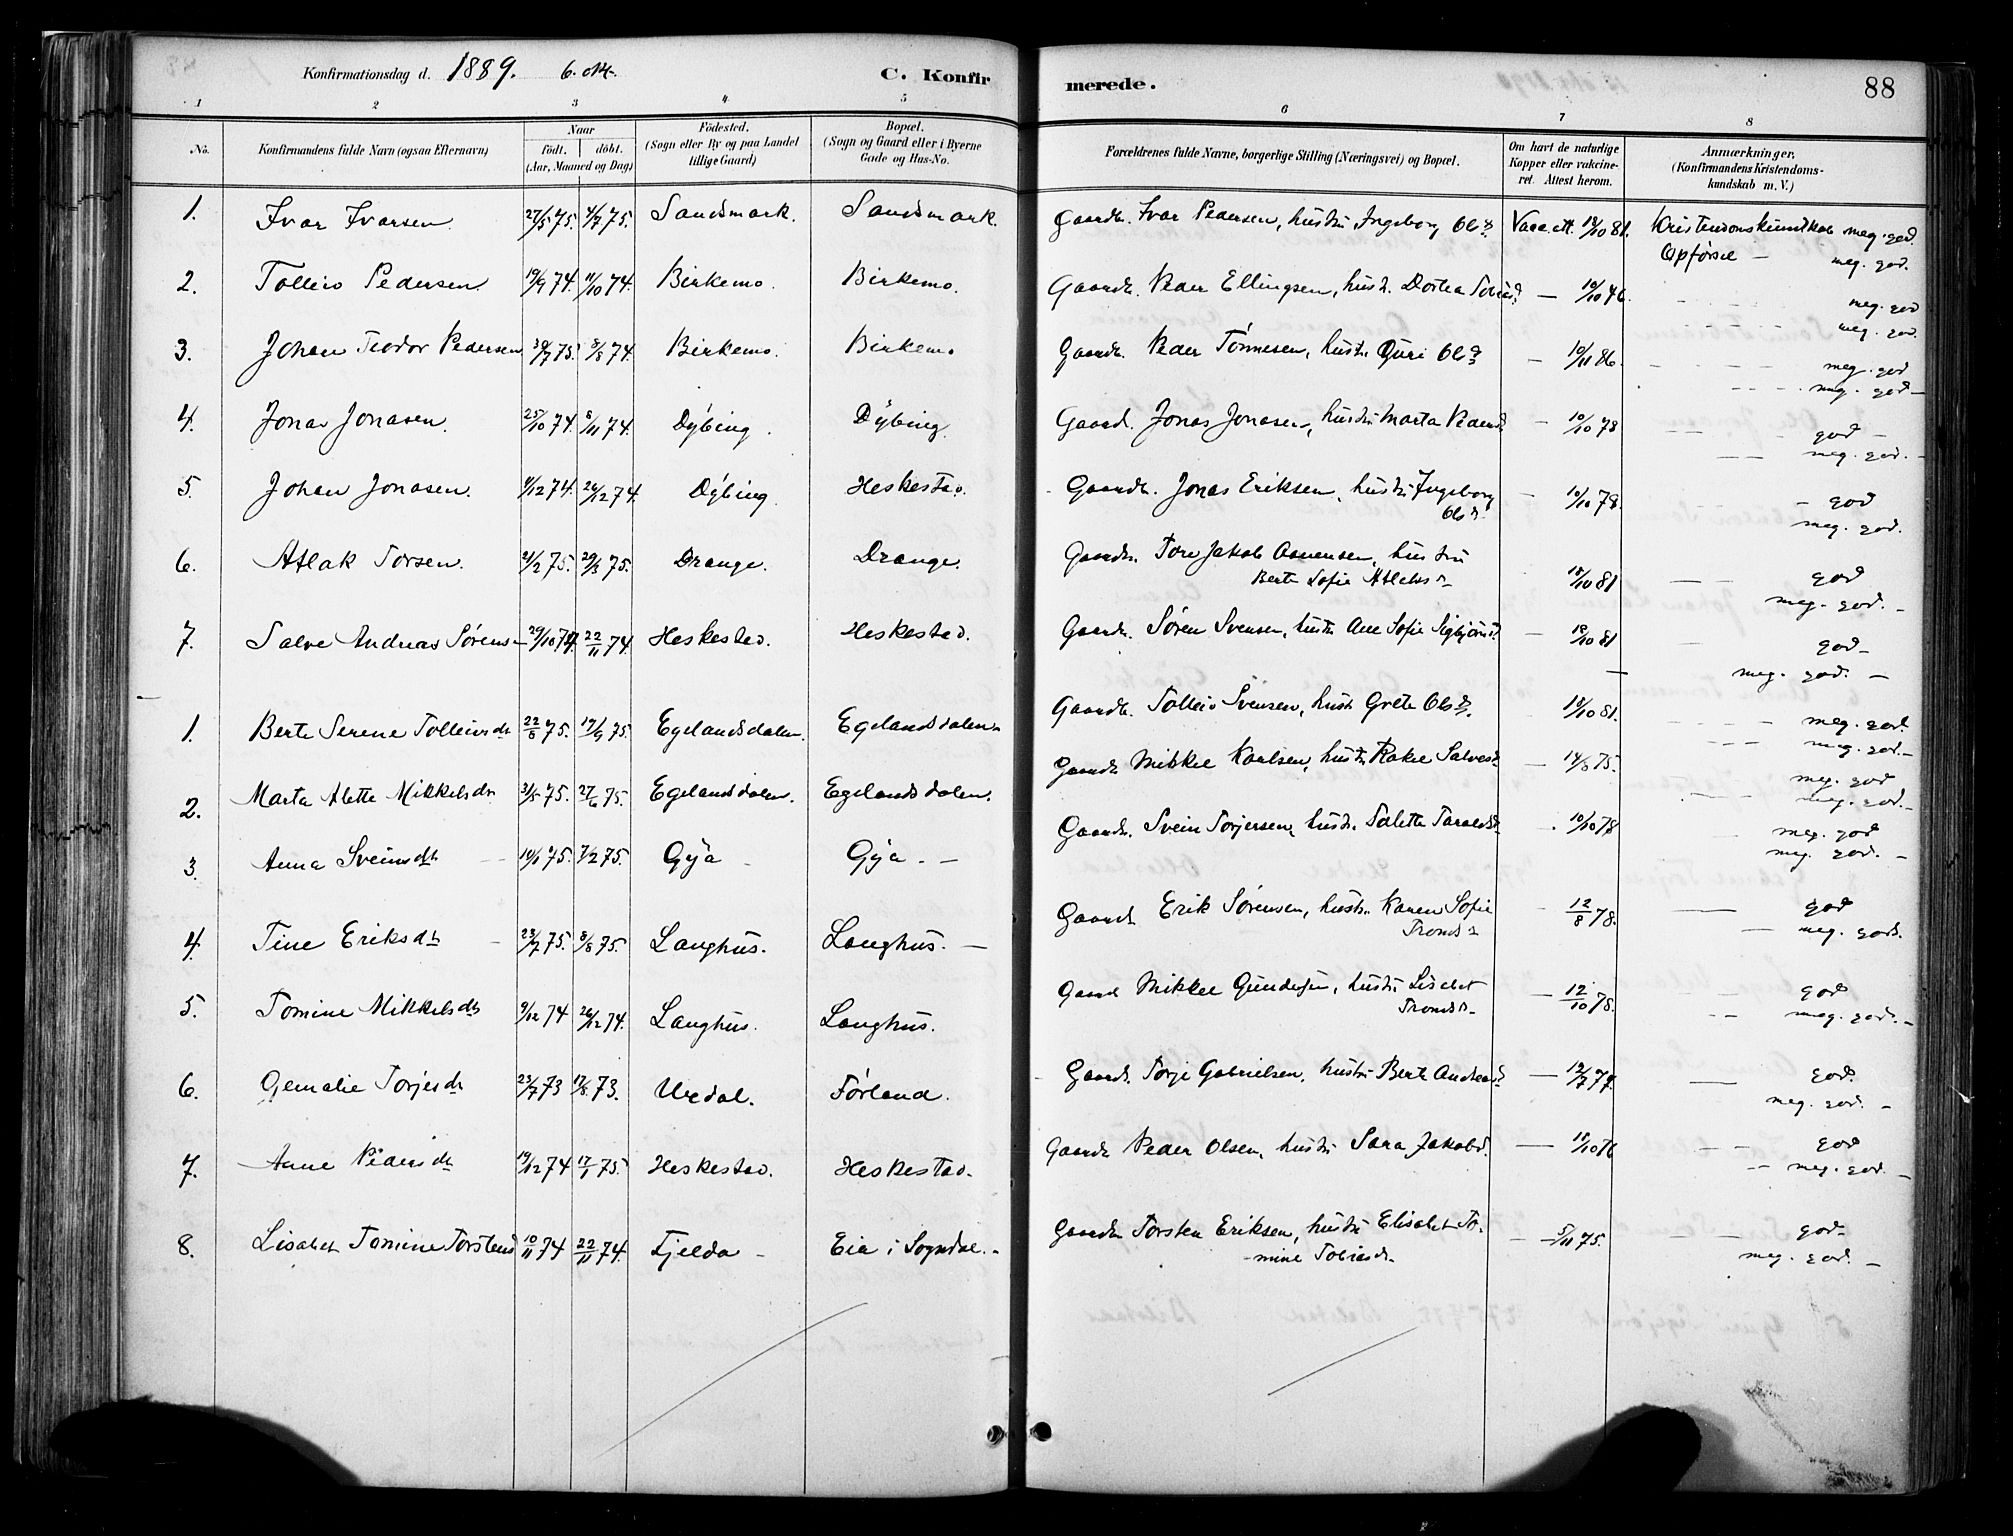 Konfirmationsdag d. 1889. 6. okt. C. Konfirmerede. 88
1 2 3 4 5 6 7 8
No. Konfirmandens fulde Navn (ogsaa Efternavn) Naar födt. döbt. (Aar, Maaned og Dag) Födested. (Sogn eller By og paa Landet tillige Gaard) Bopæl. (Sogn og Gaard eller i Byerne Gade og Hus-No. Forældrenes fulde Navne, borgerlige Stilling (Næringsvei) og Bopæl. Om havt de naturlige Kopper eller vakcineret. Attest herom. Anmærkninger, (Konfirmandens Kristendomskundskab m. V.)
1. Ivar Ivarsen. 27/5 75. 4/7 75. Sandsmark. Sandsmark. Gaardb. Ivar Pedersen, hustru Ingeborg Olsd. Vacc. att. 18/10 81. Kristendomskundskab meg. god.
Opførsel – meg. god.
2. Tolleiv Pedersen 19/9 74. 11/10 74. Birkemo. Birkemo. Gaardb. Peder Ellingsen, hust. Dortea Tobiasd. – meg. god
meg. god.
3. Johan Teodor Pedersen 8/8 74. Birkemo. Birkemo Gaardb. Peder Tønnesen, hustr. Guri Olsd. – 10/11 86. meg. god
meg. god –
4. Jonas Jonasen. 25/10 74. 8/11 74. Dÿbing. Dÿbing. Gaardb. Jonas Jonasen, hustru Marta Pedersd. – 10/10 78 god –
meg. god. –
5. Johan Jonasen. 4/12 74. 26/12 74. Dÿbing Heskestad. Gaardb. Jonas Eriksen, hustru Ingeborg Olsd. – 10/10 78. – god
meg. god.
6. Atlak Torsen. 21/2 75. 29/3 75. Drange. Drange. Gaardb. Tore Jakob Aanensen, hustru
Berte Sofie Atlaksd. 18/10 81 god
meg. god. –
7. Salve Andreas Sørensen 29/10 74. 22/11 74. Heskestad. Heskestad. Gaardb. Søren Svensen, hustr. Ane Sofie Sigbjørnsd. – 18/10 81 god –
meg. god. –
1. Berte Serene Tolleivsdt. 22/8 75. 19/9 75. Egelandsdalen. Egelandsdalen. Gaardb. Tolleiv Svensen, hust. Grete Olsd. – 18/10 81. meg. god.
meg. god. –
2. Marta Alette Mikkelsdtr. 31/5 75. 27/6 75. Egelandsdalen. Egelandsdalen. Gaardb. Mikkel Karlsen, hustr. Rakel Salvesd. – 75. meg. god
meg. god. –
3. Anna Sveinsdt. 10/1 75. 7/2 75. Gÿa – Gÿa. – Gaardb. Svein Torjersen, hustr. Salette Taraldsd. 10/10 78 meg. god
meg. god. –
4. Tine Eriksdt. 23/7 75. 8/8 75. Langhus. Langhus. – Gaardb. Erik Sørensen, hustr. Karen Sofie
Trondsd. – 12/8 78. god
meg. god.
5. Tomine Mikkelsdt. 9/12 74 26/12 74. Langhus. Langhus. Gaardb. Mikkel Gundersen, hustru Lisabet
Trondsd. – 12/10 78. god
meg. god. –
6. Gemalie Torjesdt. 23/7 73 17/8 73. Urdal. Førland. Gaardb. Torje Gabrielsen, hustru Berte Andreasd. – god.
meg. god. –
7. Anne Pedersdt. 19/12 74 17/1 75. Heskestad. Heskestad. Gaardb. Peder Olsen, hustru Sara Jakobsd. – god
meg. god. –
8. Lisabet Tomine Torstensd. 10/11 74 22/11 74. Fjelda – Eia i Sogndal. – Gaardb. Torsten Eriksen, hustru Elisabet To-
mine Tobiasdt. – 5/11 75. god –
meg. god. –